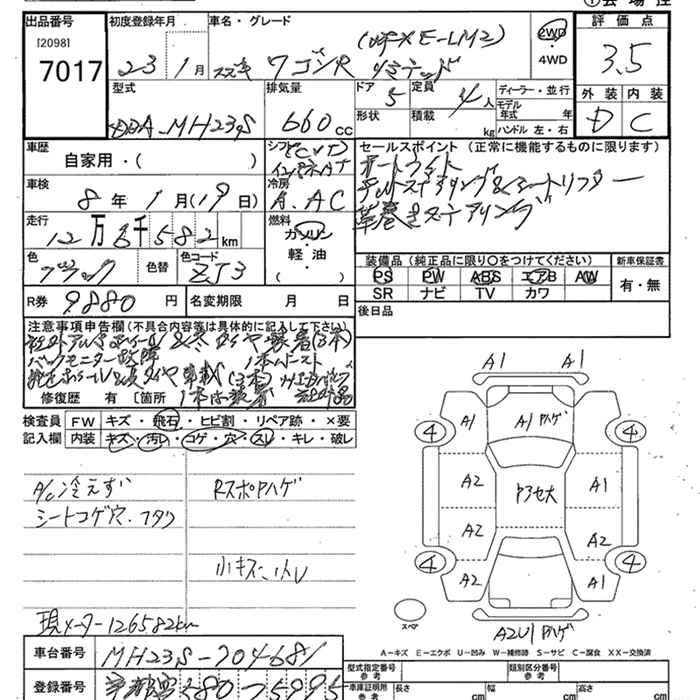 出品番号 初度登録年月 車名・グレード 評価点
[2098]
7017 23 1月 スズキ ワゴンR リミテッド 2WD 3.5
・4WD
型式 排気量 ドア 5 定員 4人 ディーラー・並行 外装 内装
DBA-MH23S 660cc 形状 積載 kg モデル年式 年 D C
ハンドル 左・右
車歴 シフト(CVT) セールスポイント (正常に機能するものに限ります)
自家用・( ) インパネAT オートライト
車検 冷房 チルトステアリング&シートリフター
8年1月(19日) A.AC 革巻きステアリング
走行 燃料
12万6千582km ガソリン
軽油
( )
色 色替 色コード 装備品 (純正品に限り○をつけてください) 新車保証書
ブラック ZJ3 PS PW ABS エアB AW 有・無
SR ナビ TV カワ
R券 9880円 名変期限 月 日 後日品
注意事項申告欄(不具合内容等は具体的に記入して下さい)
バックモニター故障
修復歴 有 [箇所
検査員 FW キズ・飛石・ヒビ割・リペア跡・×要
記入欄 内装 キズ・汚レ・コゲ・穴・スレ・キレ・破レ
A/C冷えず RスポPハゲ
シートコゲ穴.フタワ
小キズ、小U
現メーター126582km
A1 A1
A1 A1Pハゲ A1
4 4
A2 A1
A2 A2
4 4
A2 A1
スペア A2U1Pハゲ
A-キズ E-エクボ U-凹み W-補修跡 S-サビ C-腐食 XX-交換済
車台番号 MH23S-704681 型式指定番号 参考 類別区分番号 参考
登録番号 京都 580 75995 車庫証明用 参考 長さ cm 幅 cm 高さ cm